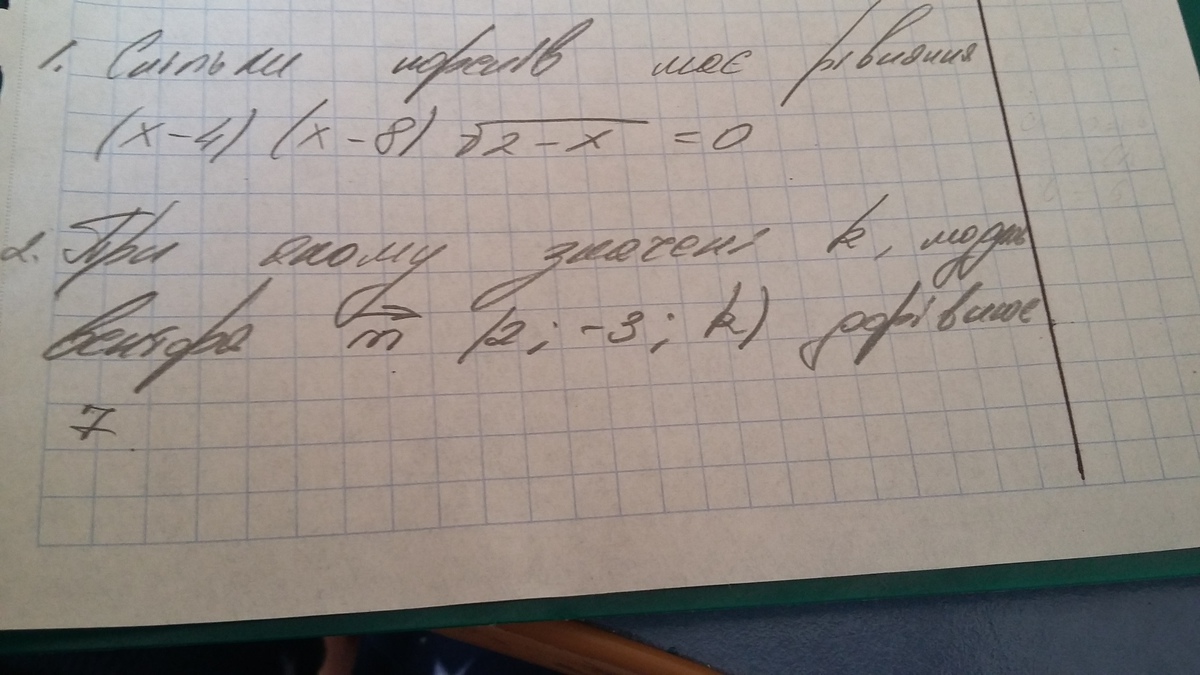 1. Скільки коренів має рівняння
(x-4) (x-8) √2-x = 0
2. При якому значені k, модуль
вектора m⃗ (2; -3; k) дорівнює
7